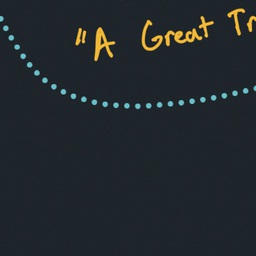 "A Great Tr